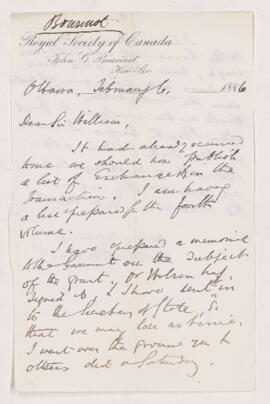 Bourinot
Royal Society of Canada
John G. Bourinot,
Hon. Sec.
Ottawa, February 6, 1886
Dear Sir William,
It had already occurred
to me we should now publish
a list of Exchanges in the
Transactions. I am having
a list prepared for the fourth
volume.
I have prepared a memorial
to the Government on the subject
of the grant, Dr Wilson has
signed it & I have sent it in
to the Secretary of State, so
that we may lose no time.
I went over the ground you &
others did on Saturday.